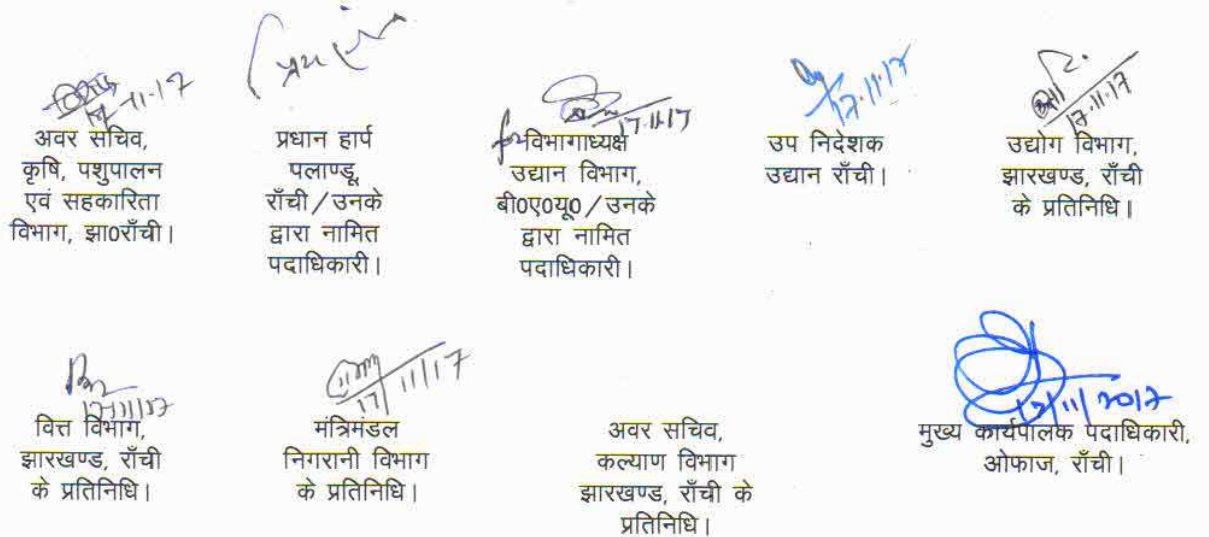 17-11-17
अवर सचिव,
कृषि, पशुपालन
एवं सहकारिता
विभाग, झा0राँची।
प्रधान हार्प
पलाण्डू,
राँची/उनके
द्वारा नामित
पदाधिकारी।
17.11.17
for विभागाध्यक्ष
उद्यान विभाग,
बी0ए0यू0/उनके
द्वारा नामित
पदाधिकारी।
17.11.17
उप निदेशक
उद्यान राँची।
17.11.17
उद्योग विभाग,
झारखण्ड, राँची
के प्रतिनिधि।
17/11/17
वित्त विभाग,
झारखण्ड, राँची
के प्रतिनिधि।
17/11/17
मंत्रिमंडल
निगरानी विभाग
के प्रतिनिधि।
अवर सचिव,
कल्याण विभाग
झारखण्ड, राँची के
प्रतिनिधि।
17/11/2017
मुख्य कार्यपालक पदाधिकारी,
ओफाज, राँची।